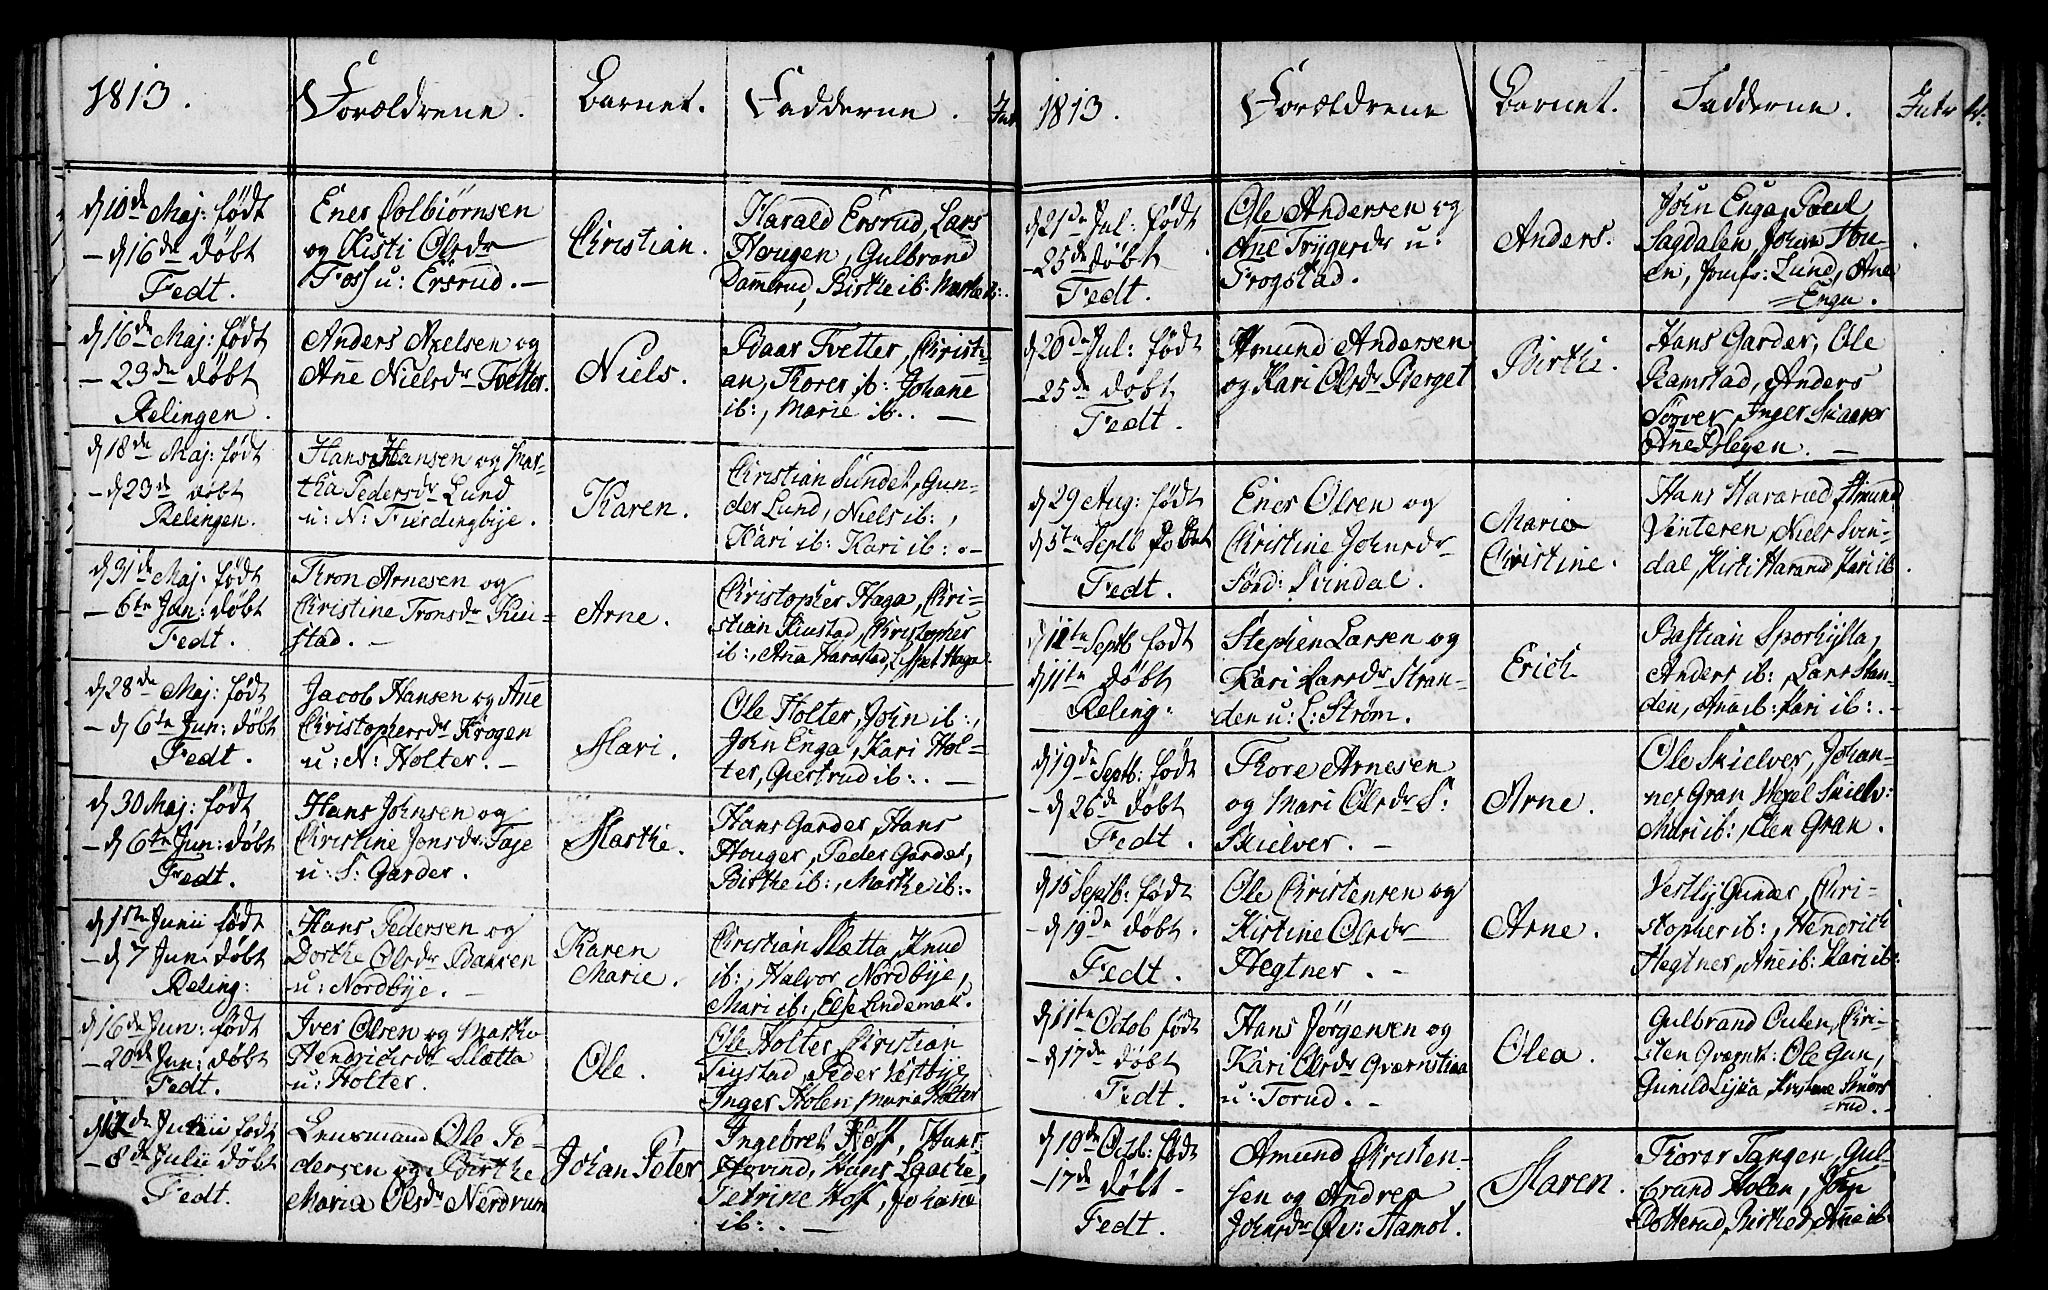 1813.
Forældrene.
Barnet.
Fadderne.
Int
d 10de Maj: født
— d 16de døbt
Fedt.
Ener Colbiørnsen
og Kisti Olsdr
Foss u: Ersrud. —
Christian.
Harald Ersrud, Lars
Hougen, Gulbrand
Dammrud, Birthe ib: Marthe ib:.
d 16de Maj: født
— 23de døbt
Relingen.
Anders Axelsen og
Ane Nielsdr Tvetter.
Niels.
Baar Tvetter, Christi-
an, Thorer ib: Johane
ib:, Marie ib:. —
d 18de Maj: født
— d 23de døbt
Relingen.
Hans Hansen og Mar-
tha Pedersdr Lund
u: N: Fierdingbye.
Karen.
Christian Sundet, Gun-
der Lund, Niels ib:,
Kari ib: Kari ib: . —
d 31de Maj: født
— 6te Jun: døbt
Fedt.
Tron Arnesen og
Christine Tronsdr Kiu-
stad. —
Arne.
Christopher Haga, Chri-
stian Kiustad, Christopher
ib:, Anna Harastad, Lisbet Haga
d 28de Maj: født
— d 6te Jun: døbt
Fedt.
Jacob Hansen og Ane
Christophersdr Krogen
u: N: Holter. —
Mari.
Ole Holter, John ib:,
John Enga, Kari Hol-
ter, Giertrud ib:. —
d 30 Maj: født
— d 6te Jun: døbt
Fedt.
Hans Johnsen og
Christine Jonsdr Faje
u: S: Garder.
Marthe.
Hans Garder, Hans
Houger, Peder Garder,
Birthe ib:, Marthe ib:.
d 1ste Junii født
— d 7 Jun: døbt
Reling:
Hans Pedersen og
Dorthe Olsdr Bakken
u: Nordbye. —
Karen
Marie.
Christian Slætta, Knud
ib:, Halvor Nordbye,
Mari ib:, Else Lindemark.
d 16de Jun: født
— 20de Jun: døbt
Fedt.
Iver Olsen og Marthe
Hendrichsdr Slætta
u: Holter.
Ole.
Ole Holter, Christian
Tiystad, Peder Vestbye
Inger Holen, Maria Holter
Junii født
— 8de Julii døbt
Fedt.
Lensmand Ole Pe-
dersen og Birthe
Maria Olsdr Nordrum
Johan Peter
Ingebret Hoff, Hans
Hovind, Hans Laache,
Petrine Hoff, Johane
ib:. —
1813.
Forældrene
Barnet.
Fadderne.
Intr
d 21de Jul: født
— 25de døbt
Fedt.
Ole Andersen og
Ane Trygersdr u:
Frogstad.
Anders.
John Enga, Poul
Sagdalen, Johan Hou-
en, Jomfr: Lund, Ane
Enga.
d 20de Jul: født
— 25de døbt
Fedt.
Amund Andersen
og Kari Olsdr Berget
Birthe.
Hans Garder, Ole
Ramstad, Anders
Torver, Inger Skaarer
Ane Øleyen. —
d 29 Aug: født
d 5te Septb døbt
Fedt.
Ener Olsen og
Christine Johnsdr
Sønd: Svindal.
Marie
Christine.
Hans Hararud, Amund
Venteren, Niels Svin-
dal, Kisti Hararud, Kari ib.
Septb født
d 11te døbt
Reling:
Stephen Larsen og
Kari Larsdr Stran-
den u: L: Strøm.
Erich
Bastian Sporhysta,
Anders ib:, Lars Stran-
den, Ane ib: Kari ib:. —
d 19de Septb: født
— d 26de døbt
Fedt.
Thore Arnesen
og Mari Olsdr S:
Skielver. —
Arne.
Ole Skielver, Johan-
nes Gran, Hexel Skielv:
Mari ib:, Elen Gran.
d 15 Septb: født
— d 19de døbt.
Fedt.
Ole Christensen og
Kirstine Olsdr
Hegtner. —
Arne.
Vestly Gunder, Chri-
stopher ib:, Hendrich
Hegtner, Ane ib: Kari ib:
d 11te Octob født
— d 17de døbt
Fedt.
Hans Jørgensen og
Kari Olsdr Qværnstua
u: Torud. —
Olea.
Gulbrand Outen, Chri-
sten Qværnst: Ole Gun,
Gunild Lyska, Kirstine Smørs-
rud. —
d 10de Octb: født
— 17de døbt —
Fedt.
Amund Christen-
sen og Andrea
Johnsdr Øv: Hamol.
Maren.
Thorer Tangen, Gul-
brand Holen, John
Dotterud, Birthe D, Ane ib.